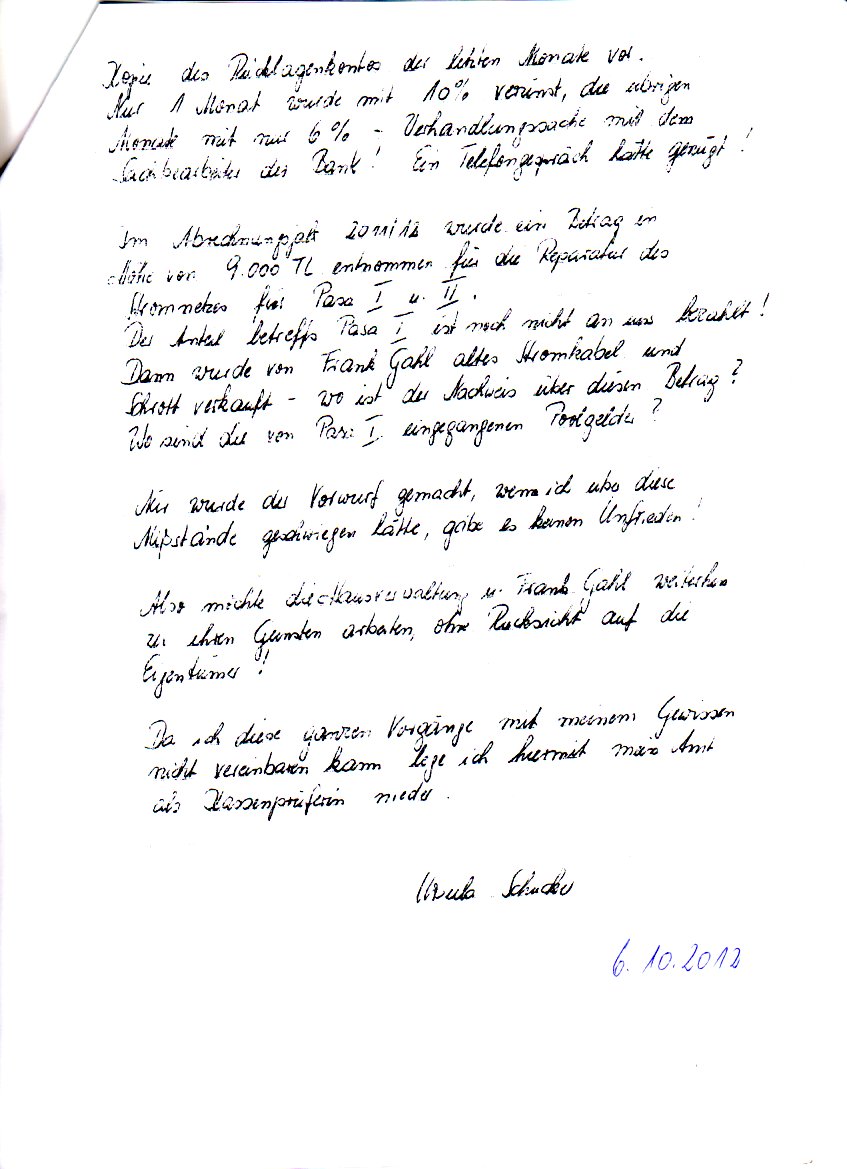 Kopie des Rücklagenkontos der letzten Monate vor.
Nur 1 Monat wurde mit 10% verzinst, die übrigen
Monate mit nur 6% - Verhandlungssache mit dem
Sachbearbeiter der Bank! Ein Telefongespräch hätte genügt!
Im Abrechnungsjahr 2011/12 wurde ein Betrag in
Höhe von 9.000 TL entnommen für die Reparatur des
Stromnetzes für Pasa I u. II.
Der Anteil betreffs Pasa I ist noch nicht an uns bezahlt!
Dann wurde von Frank Gahl altes Stromkabel und
Schrott verkauft - wo ist der Nachweis über diesen Betrag?
Wo sind die von Pasa I eingegangenen Poolgelder?
Mir wurde der Vorwurf gemacht, wenn ich über diese
Mißstände geschwiegen hätte, gäbe es keinen Unfrieden!
Also möchte die Hausverwaltung u. Frank Gahl weiterhin
zu ihren Gunsten arbeiten, ohne Rücksicht auf die
Eigentümer!
Da ich diese ganzen Vorgänge mit meinem Gewissen
nicht vereinbaren kann lege ich hiermit mein Amt
als Kassenprüferin nieder.
Ursula
6.10.2012